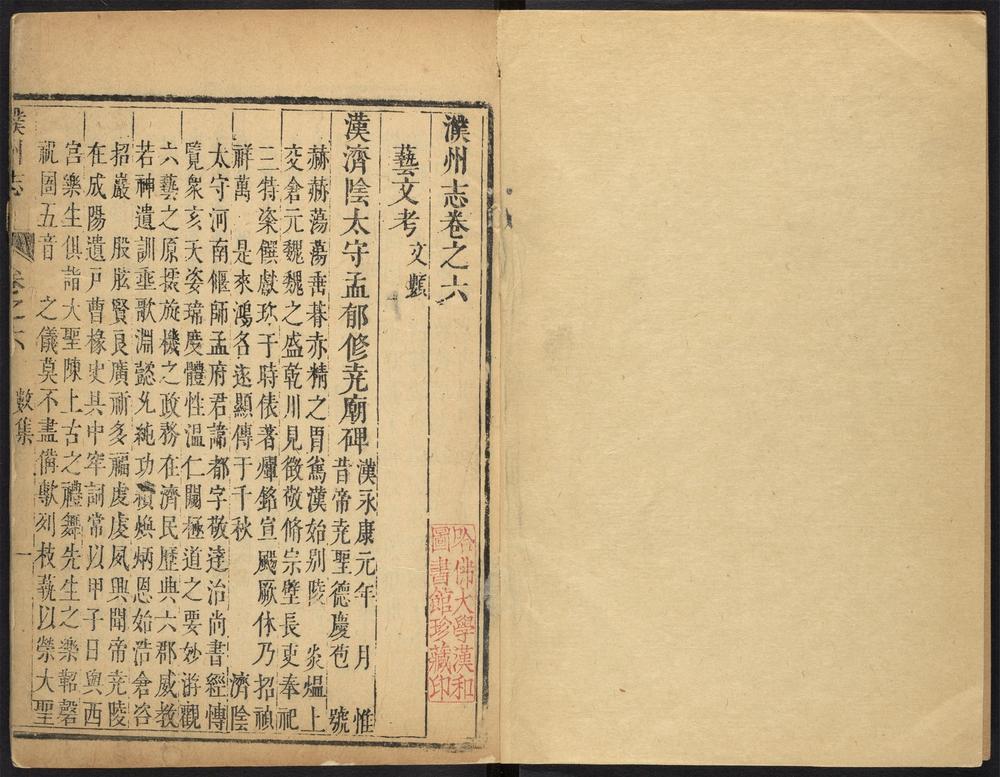 濮州志卷之六
藝文考 文類
漢濟陰太守孟郁修尭廟碑
漢永康元年 月 惟
昔帝尭聖德慶苞 號
赫赫蕩蕩垂朞赤精之胃爲漢始别陵 炎熅上
交倉元魏魏之盛乾川見徵敬脩宗壁長吏奉祀
三特粢饌獻珎于時俵著爛銘宣颺厥休乃招禎
祥萬 是來鴻名逺顯傳于千秋 濟陰
太守河南偃師孟府君諱都字敬達治尚書經博
覽衆亥天姿瑋度體性温仁闡極道之要妙游觀
六藝之原摂旋機之政務在濟民歴典六郡威敎
若神遺訓垂歌淵懿允純功積煥炳恩如浩倉咨
招巖 股肱賢良廣祈多福虔虔夙興聞帝尭陵
在成陽遣戸曹掾史具中牢祠常以甲子日與西
宮樂生俱詣大聖陳上古之禮舞先生之樂鞉磬
祝圄五音 之儀莫不盡備歟刻枝蓺以榮大聖
濮州志 卷之六 數集 一
哈佛大學漢和
圖書館珍藏印